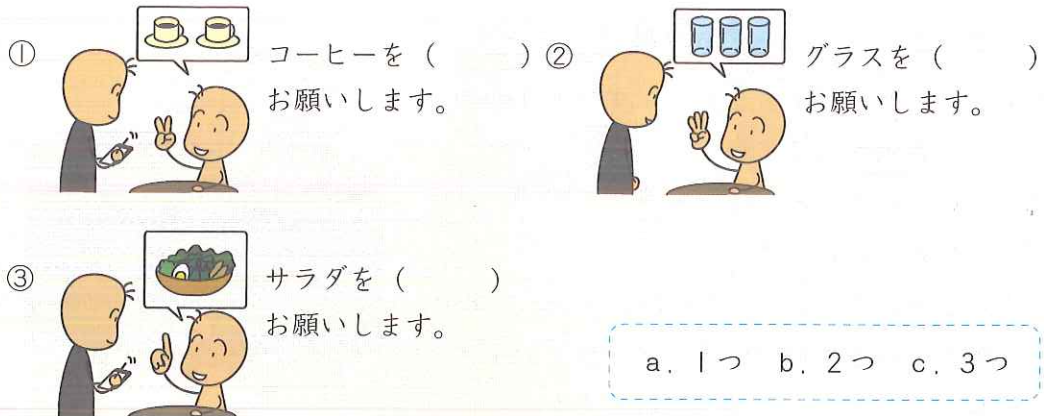 ① コーヒーを（　　　）
お願いします。
② グラスを（　　　）
お願いします。
③ サラダを（　　　）
お願いします。
a. 1つ　b. 2つ　c. 3つ